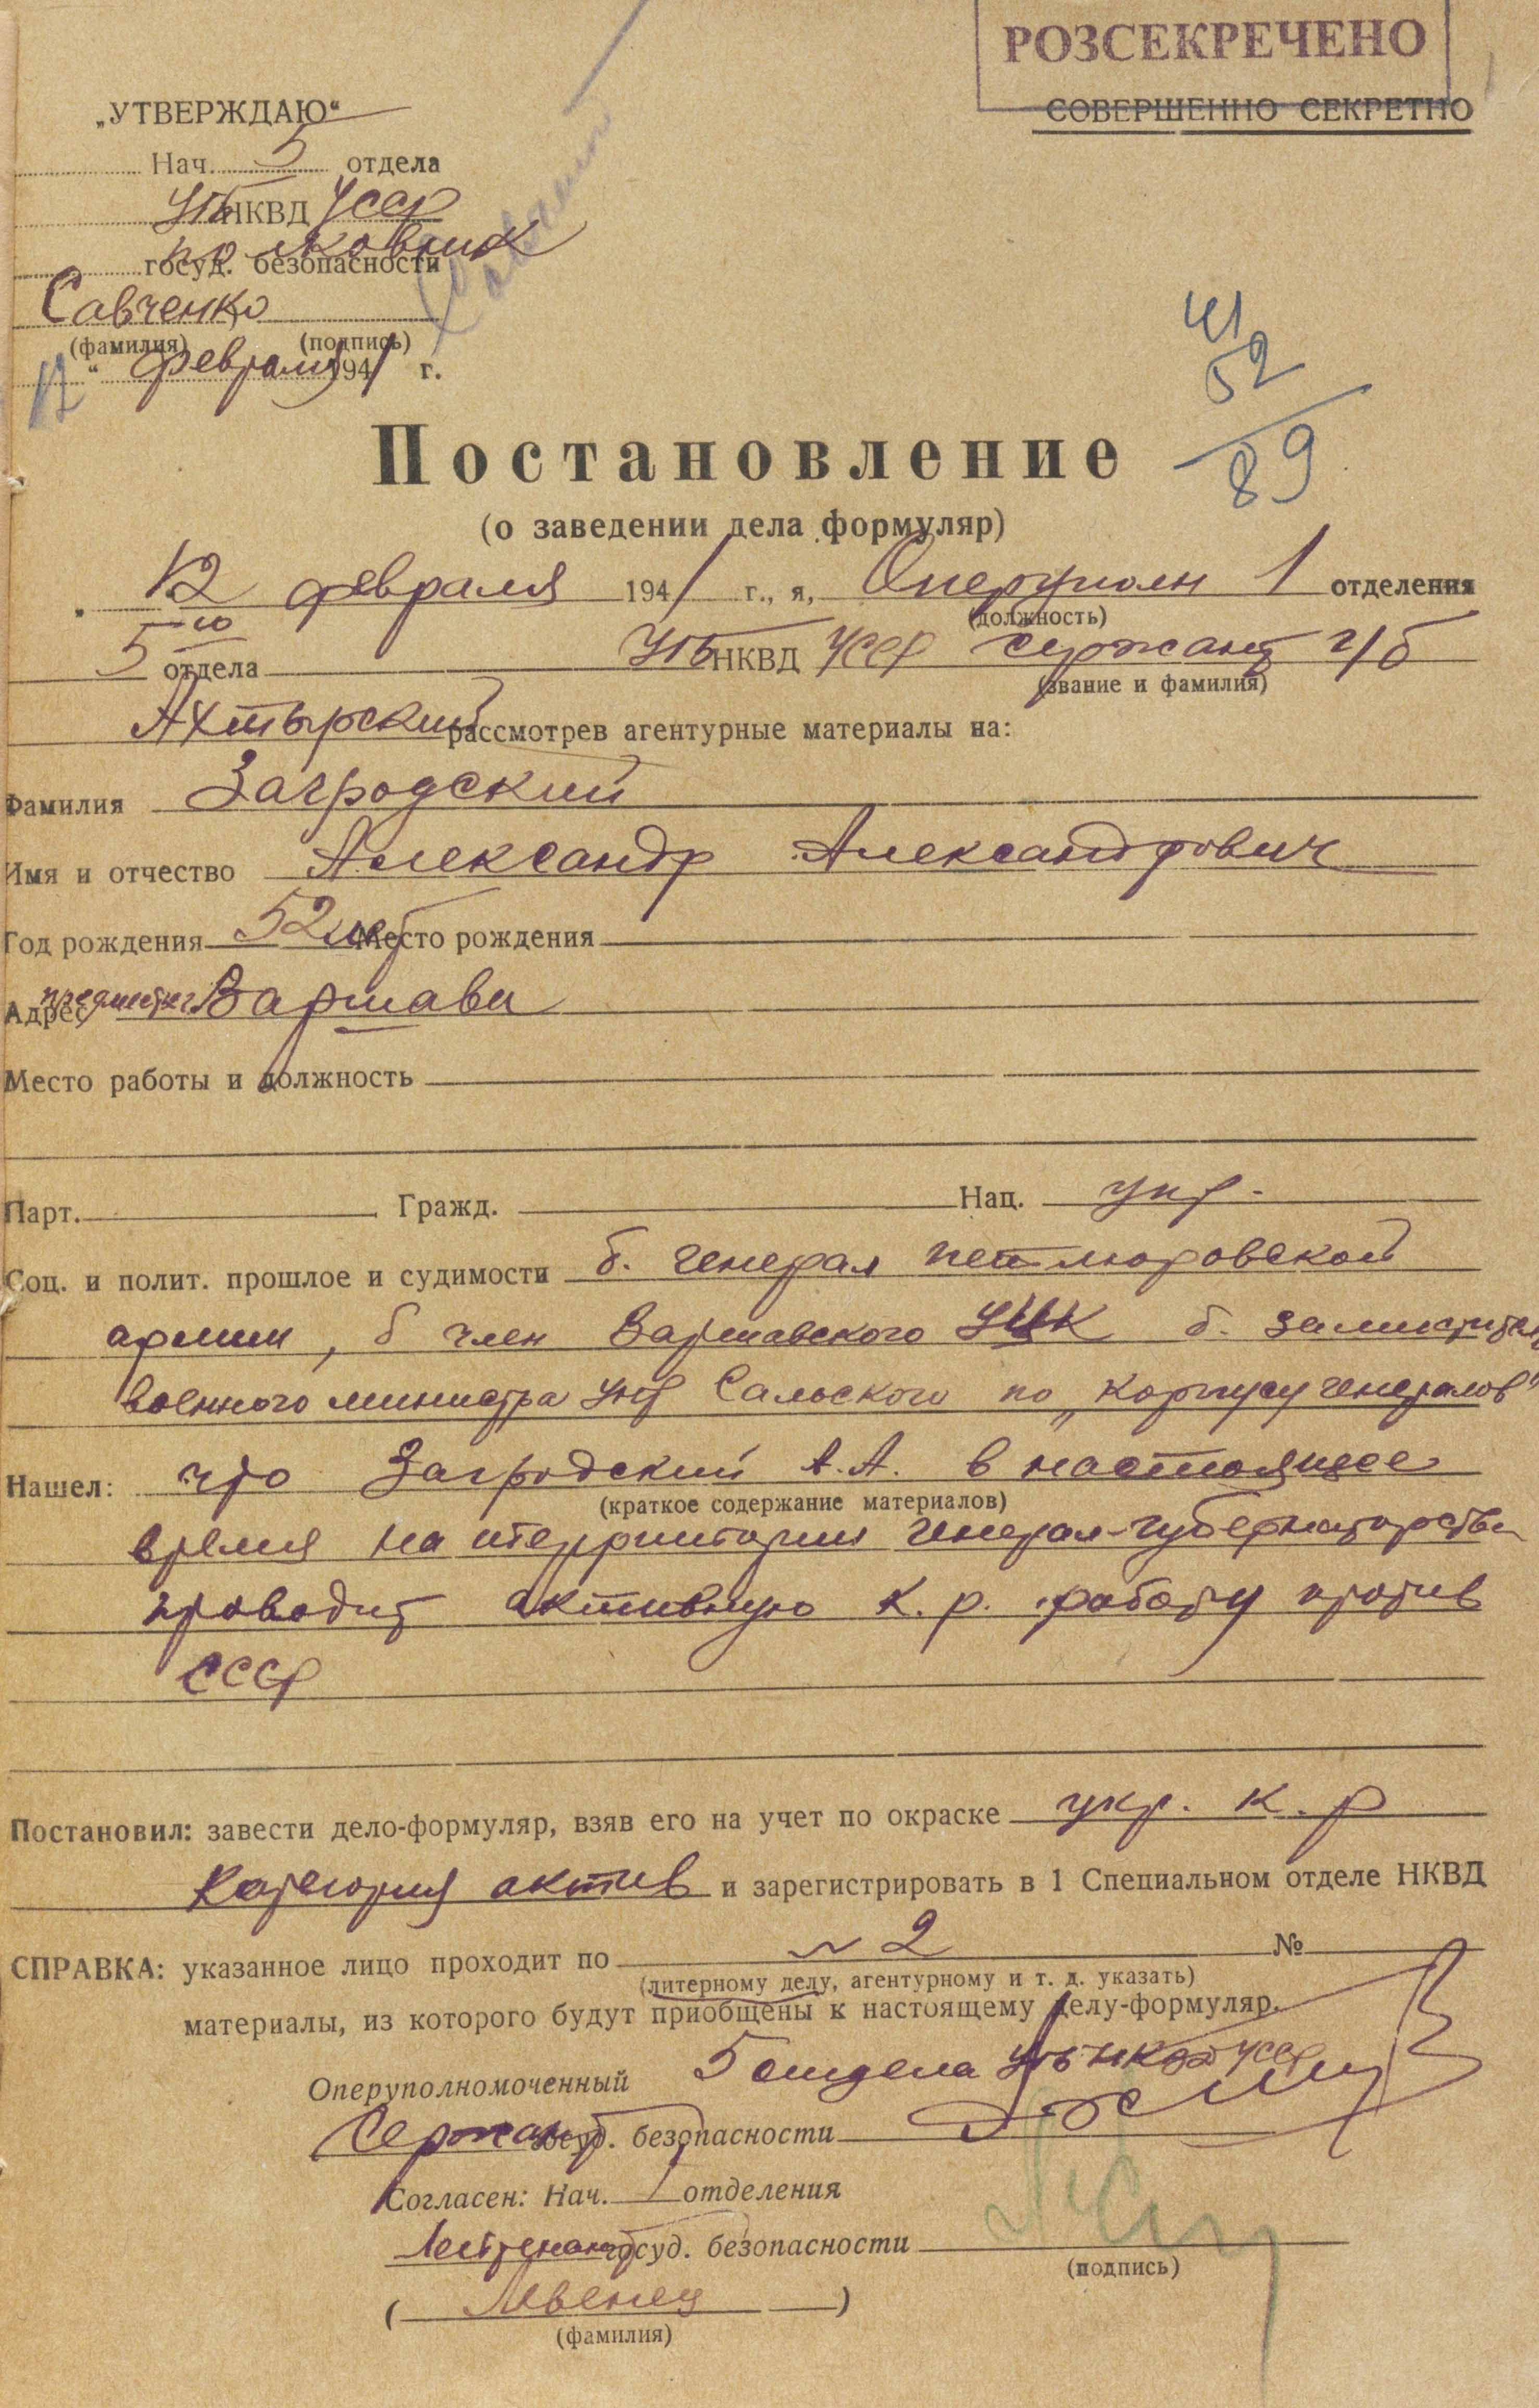 РОЗСЕКРЕЧЕНО
СОВЕРШЕННО СЕКРЕТНО
„УТВЕРЖДАЮ“
Нач. 5 отдела
УГБ НКВД УССР
полковник
госуд. безопасности
Савченко
(фамилия) (подпись)
12 " февраля 1941 г.
41
52
89
Постановление
(о заведении дела формуляр)
12 февраля 1941 г., я, Оперуполн 1 отделения
(должность)
5го отдела УГБ НКВД УССР сержант г/б
(звание и фамилия)
Ахтырский рассмотрев агентурные материалы на:
Фамилия Загродский
Имя и отчество Александр Александрович
Год рождения 52 лет Место рождения
Адрес предместье Варшавы
Место работы и должность
Парт. Гражд. Нац. укр.
Соц. и полит. прошлое и судимости б. генерал петлюровской
армии, б член Варшавского УЦК б. заместитель
военного министра УНР Сальского по „Корпусу генералов"
Нашел: что Загродский А.А. в настоящее
(краткое содержание материалов)
время на территории генерал-губернаторства
проводит активную к.р. работу против
СССР
Постановил: завести дело-формуляр, взяв его на учет по окраске укр. к.р
категория актив и зарегистрировать в 1 Специальном отделе НКВД
СПРАВКА: указанное лицо проходит по 2 №
(литерному делу, агентурному и т. д. указать)
материалы, из которого будут приобщены к настоящему делу-формуляр.
Оперуполномоченный 5 отдела УГБ НКВД УССР
Сержант госуд. безопасности
Согласен: Нач. 1 отделения
Лейтенант госуд. безопасности
(подпись)
( )
(фамилия)